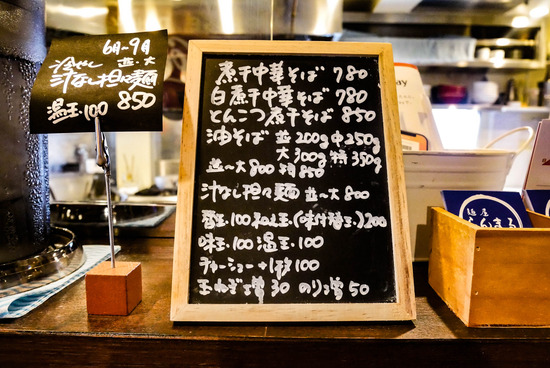 6月-9月
冷やし 並~大
汁なし担々麺
温玉100 850
煮干中華そば 780
白煮干中華そば 780
とんこつ煮干そば 850
油そば 並200g 中250g
大300g 特350g
並~大800 特850
汁なし担々麺 並~大800
替玉100 和え玉(味付替玉)200
味玉100 温玉100
チャーシュー+1枚100
玉ねぎ増30 のり増50
麺屋